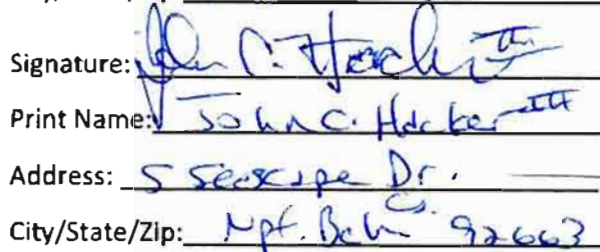 Signature: John C. Hacker III
Print Name: John C. Hacker III
Address: 5 Seascape Dr.
City/State/Zip: Npt. Bch Ca. 92663